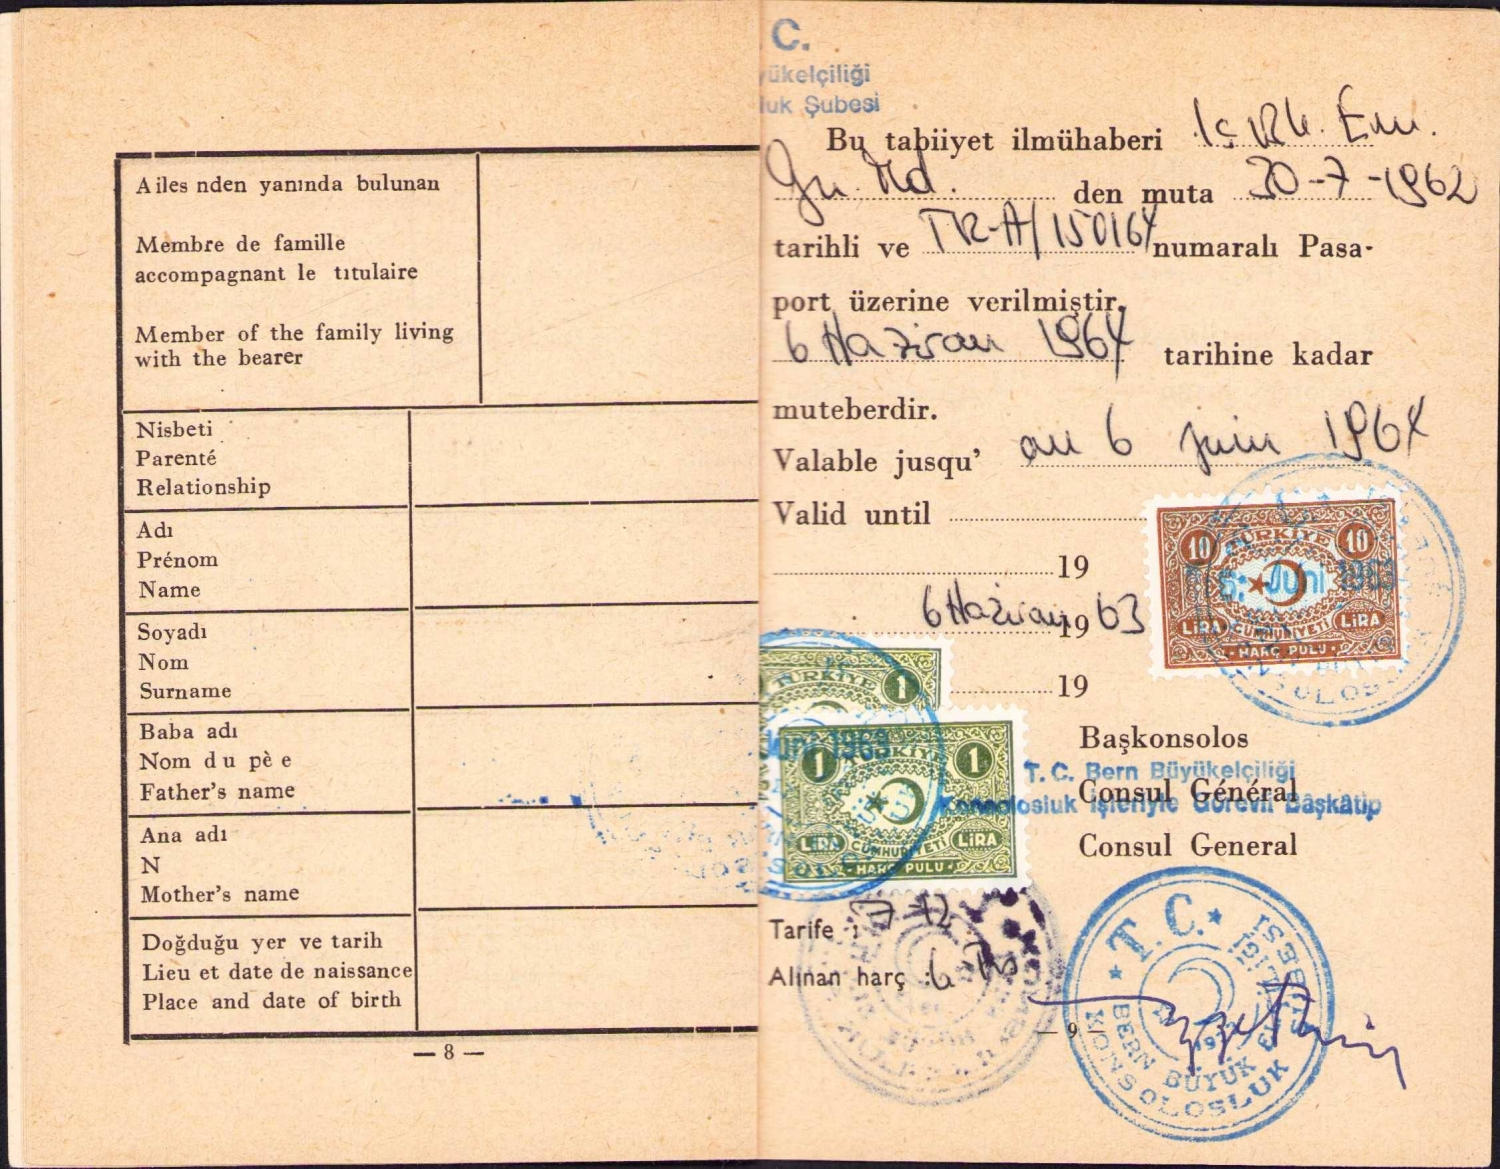 Ailes nden yanında bulunan
Membre de famille
accompagnant le tıtulaire
Member of the family living
with the bearer
Nisbeti
Parenté
Relationship
Adı
Prénom
Name
Soyadı
Nom
Surname
Baba adı
Nom du pè e
Father's name
Ana adı
N
Mother's name
Doğduğu yer ve tarih
Lieu et date de naissance
Place and date of birth
— 8 —
C.
yükelçiliği
luk Şubesi
Bu tabiiyet ilmühaberi
den muta 30-7-1962
tarihli ve TR-A/150164 numaralı Pasa-
port üzerine verilmiştir.
6 Haziran 1964 tarihine kadar
muteberdir.
Valable jusqu' au 6 juin 1964
Valid until
19
6 Haziran 19 63
19
10 TÜRKİYE 10
Juni 1963
LİRA CUMHURİYETİ LİRA
HARÇ PULU
TÜRKİYE 1
Juni 1963
1 1
LİRA CUMHURİYETİ LİRA
HARÇ PULU
Başkonsolos
T. C. Bern Büyükelçiliği
Consul Général
Konsolosluk İşleriyle Görevli Başkâtip
Consul General
Tarife :
Alınan harç :
T. C.
BERN BÜYÜK ELÇİLİĞİ
KONSOLOSLUK ŞUBESİ
— 9 —